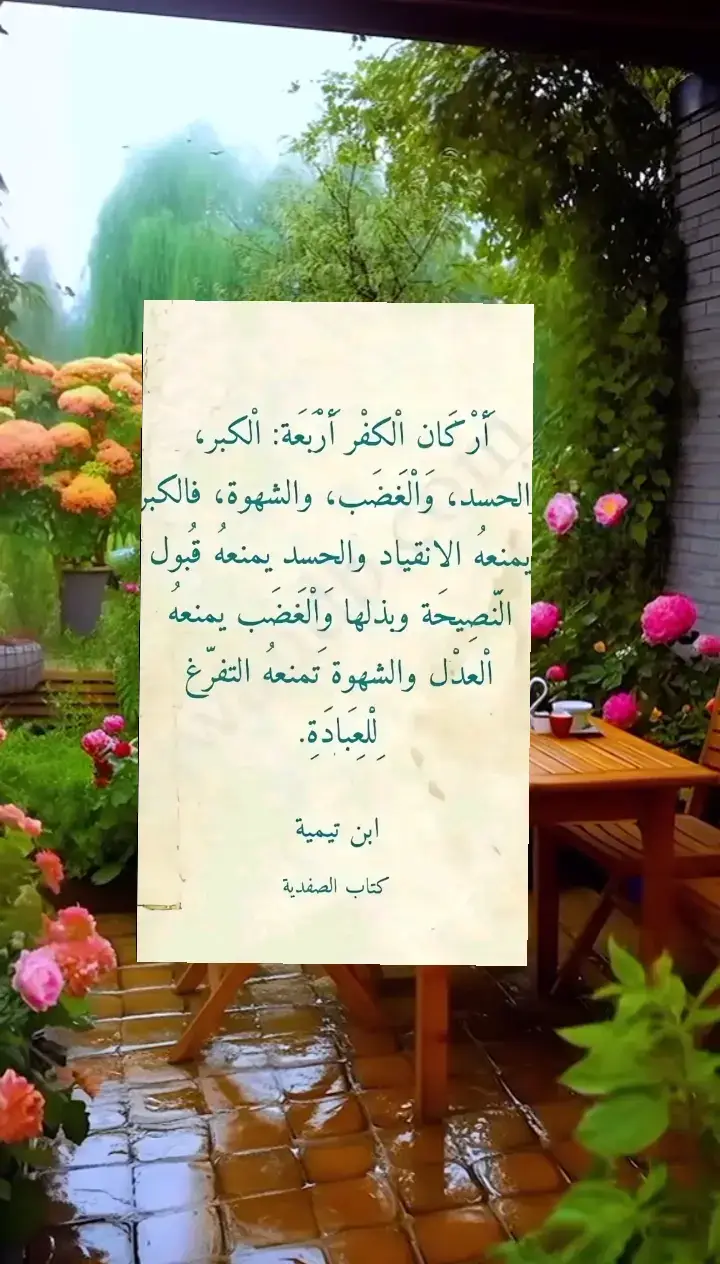 أَرْكَان الْكفْر أَرْبَعَة: الْكبر،
الحسد، وَالْغَضَب، والشهوة، فالكبر
يمنعهُ الانقياد والحسد يمنعهُ قُبول
النّصِيحَة وبذلها وَالْغَضَب يمنعهُ
الْعدْل والشهوة تَمنعهُ التفرّغ
لِلْعِبَادَةِ.
ابن تيمية
كتاب الصفدية